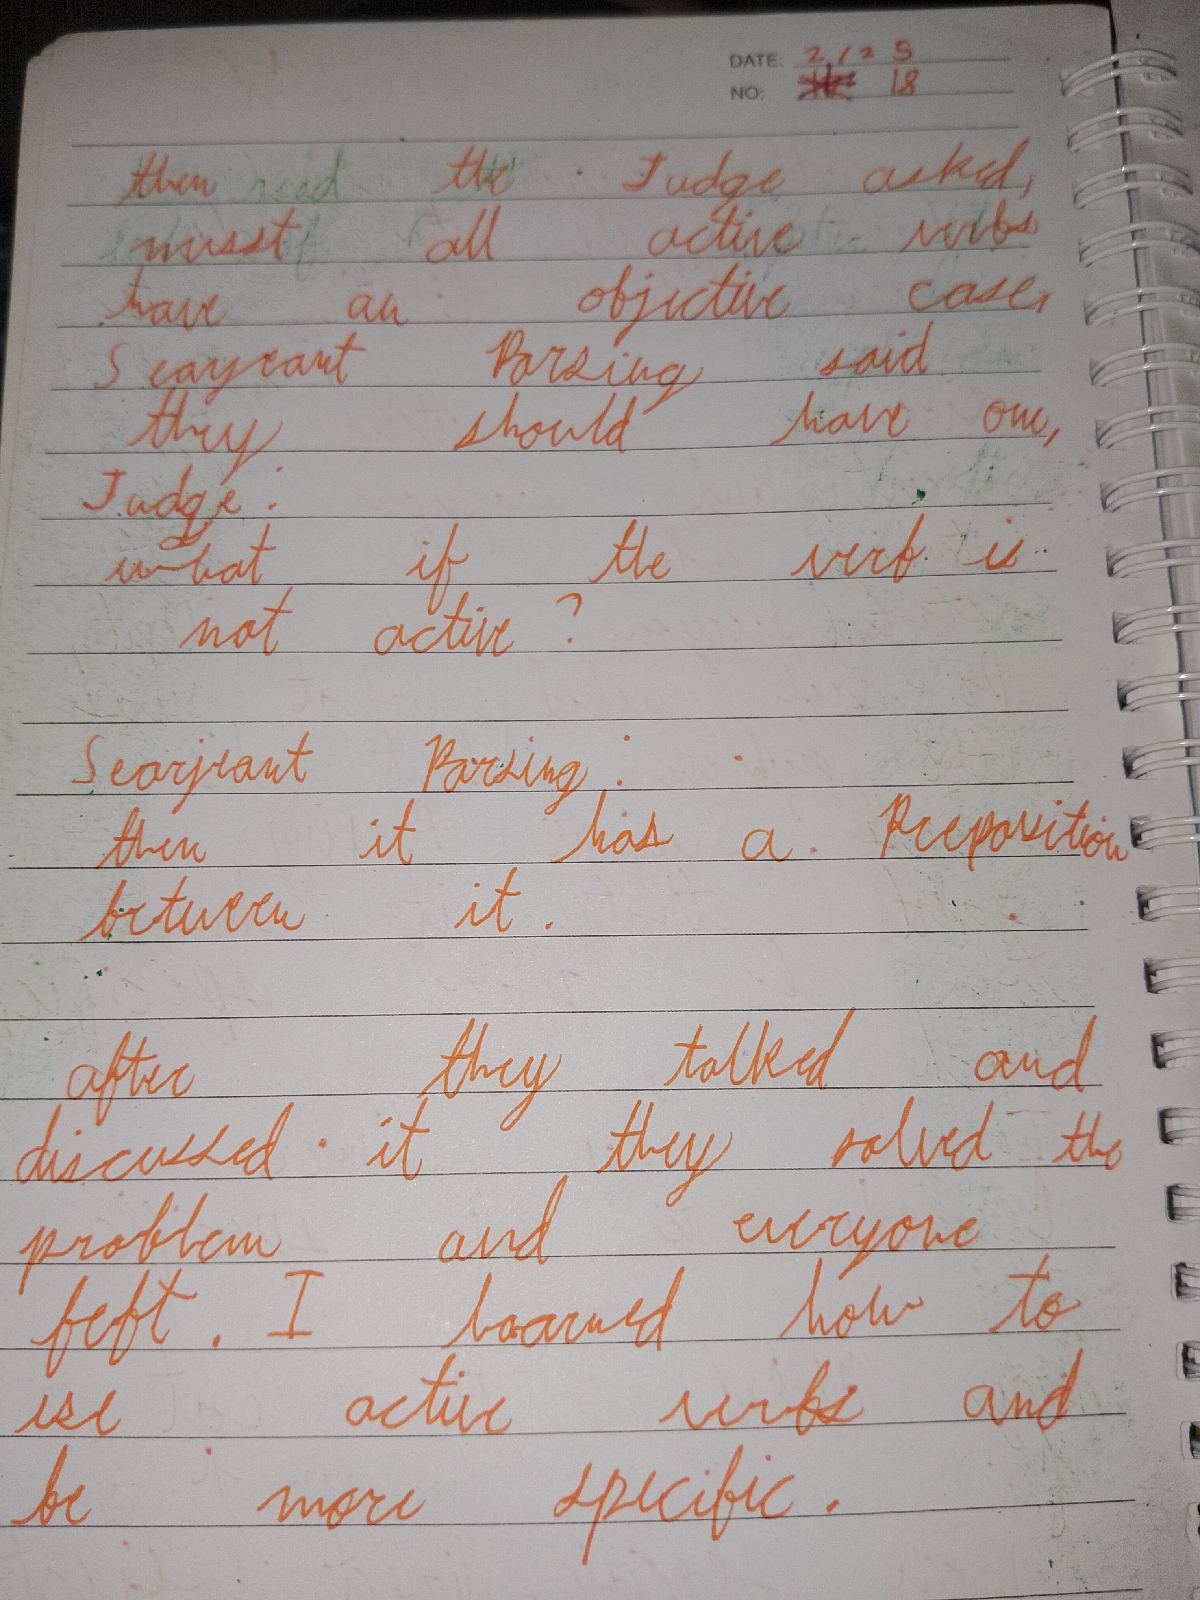 DATE: 2/25
NO: 18
then the Judge asked,
musst all active verbs
have an objective case,
Seargeant Parsing said
they should have one,
Judge:
what if the verb is
not active?
Searjeant Parsing:
then it has a Preeposition
between it.
after they talked and
discussed it they solved the
problem and everyone
left. I learned how to
use active verbs and
be more specific.